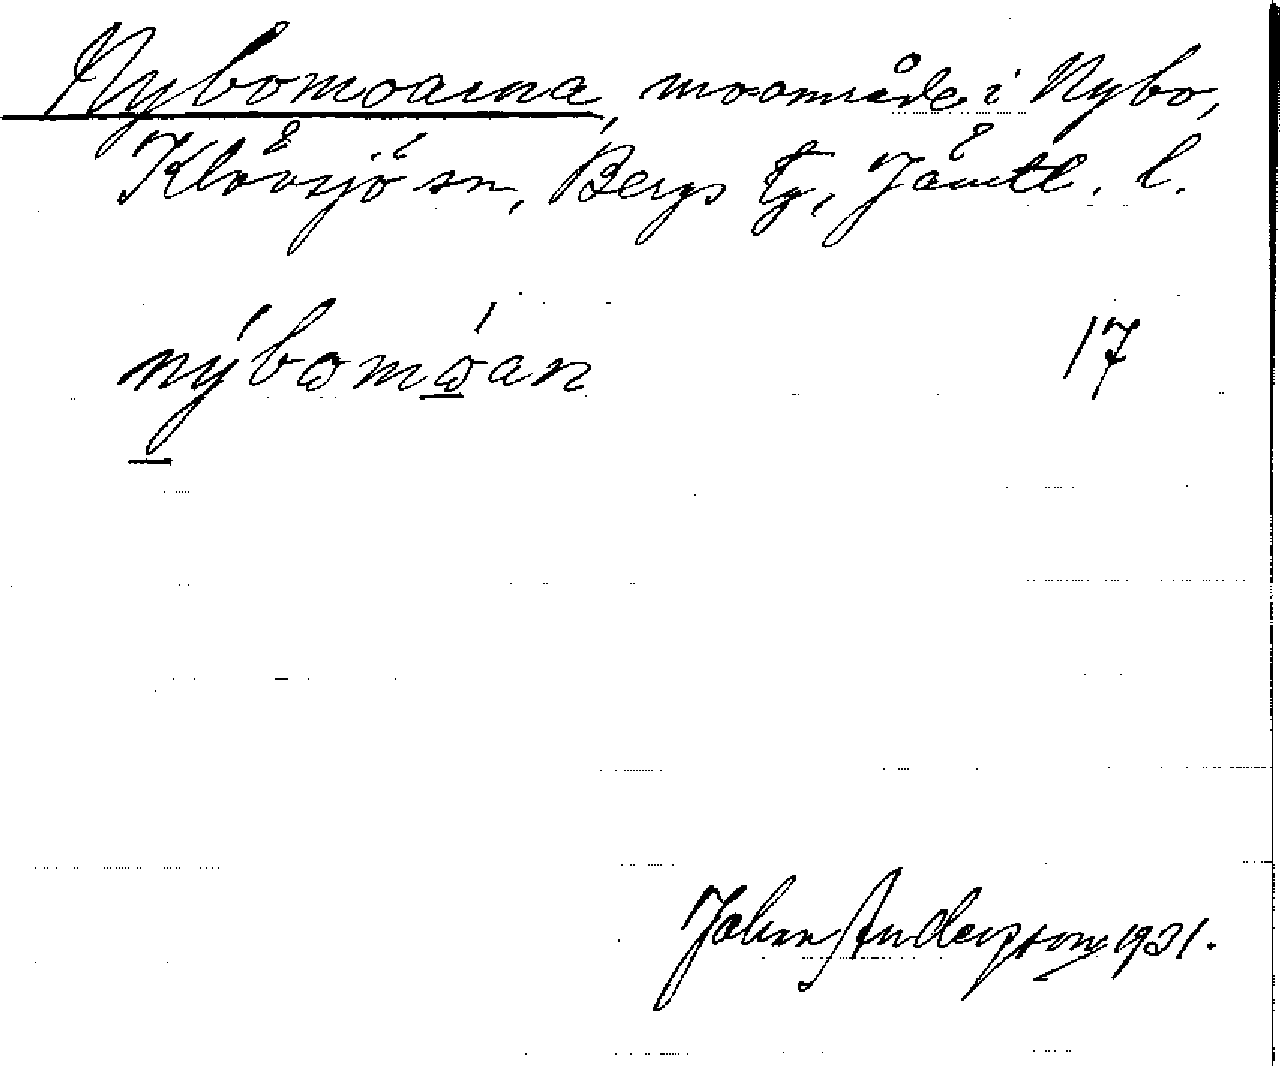 Nybomoarna, moområde i Nybo,
Klövsjö sn, Bergs tg, Jämtl. l.
nýbωmώ̲an 17
John Andersson 1931.